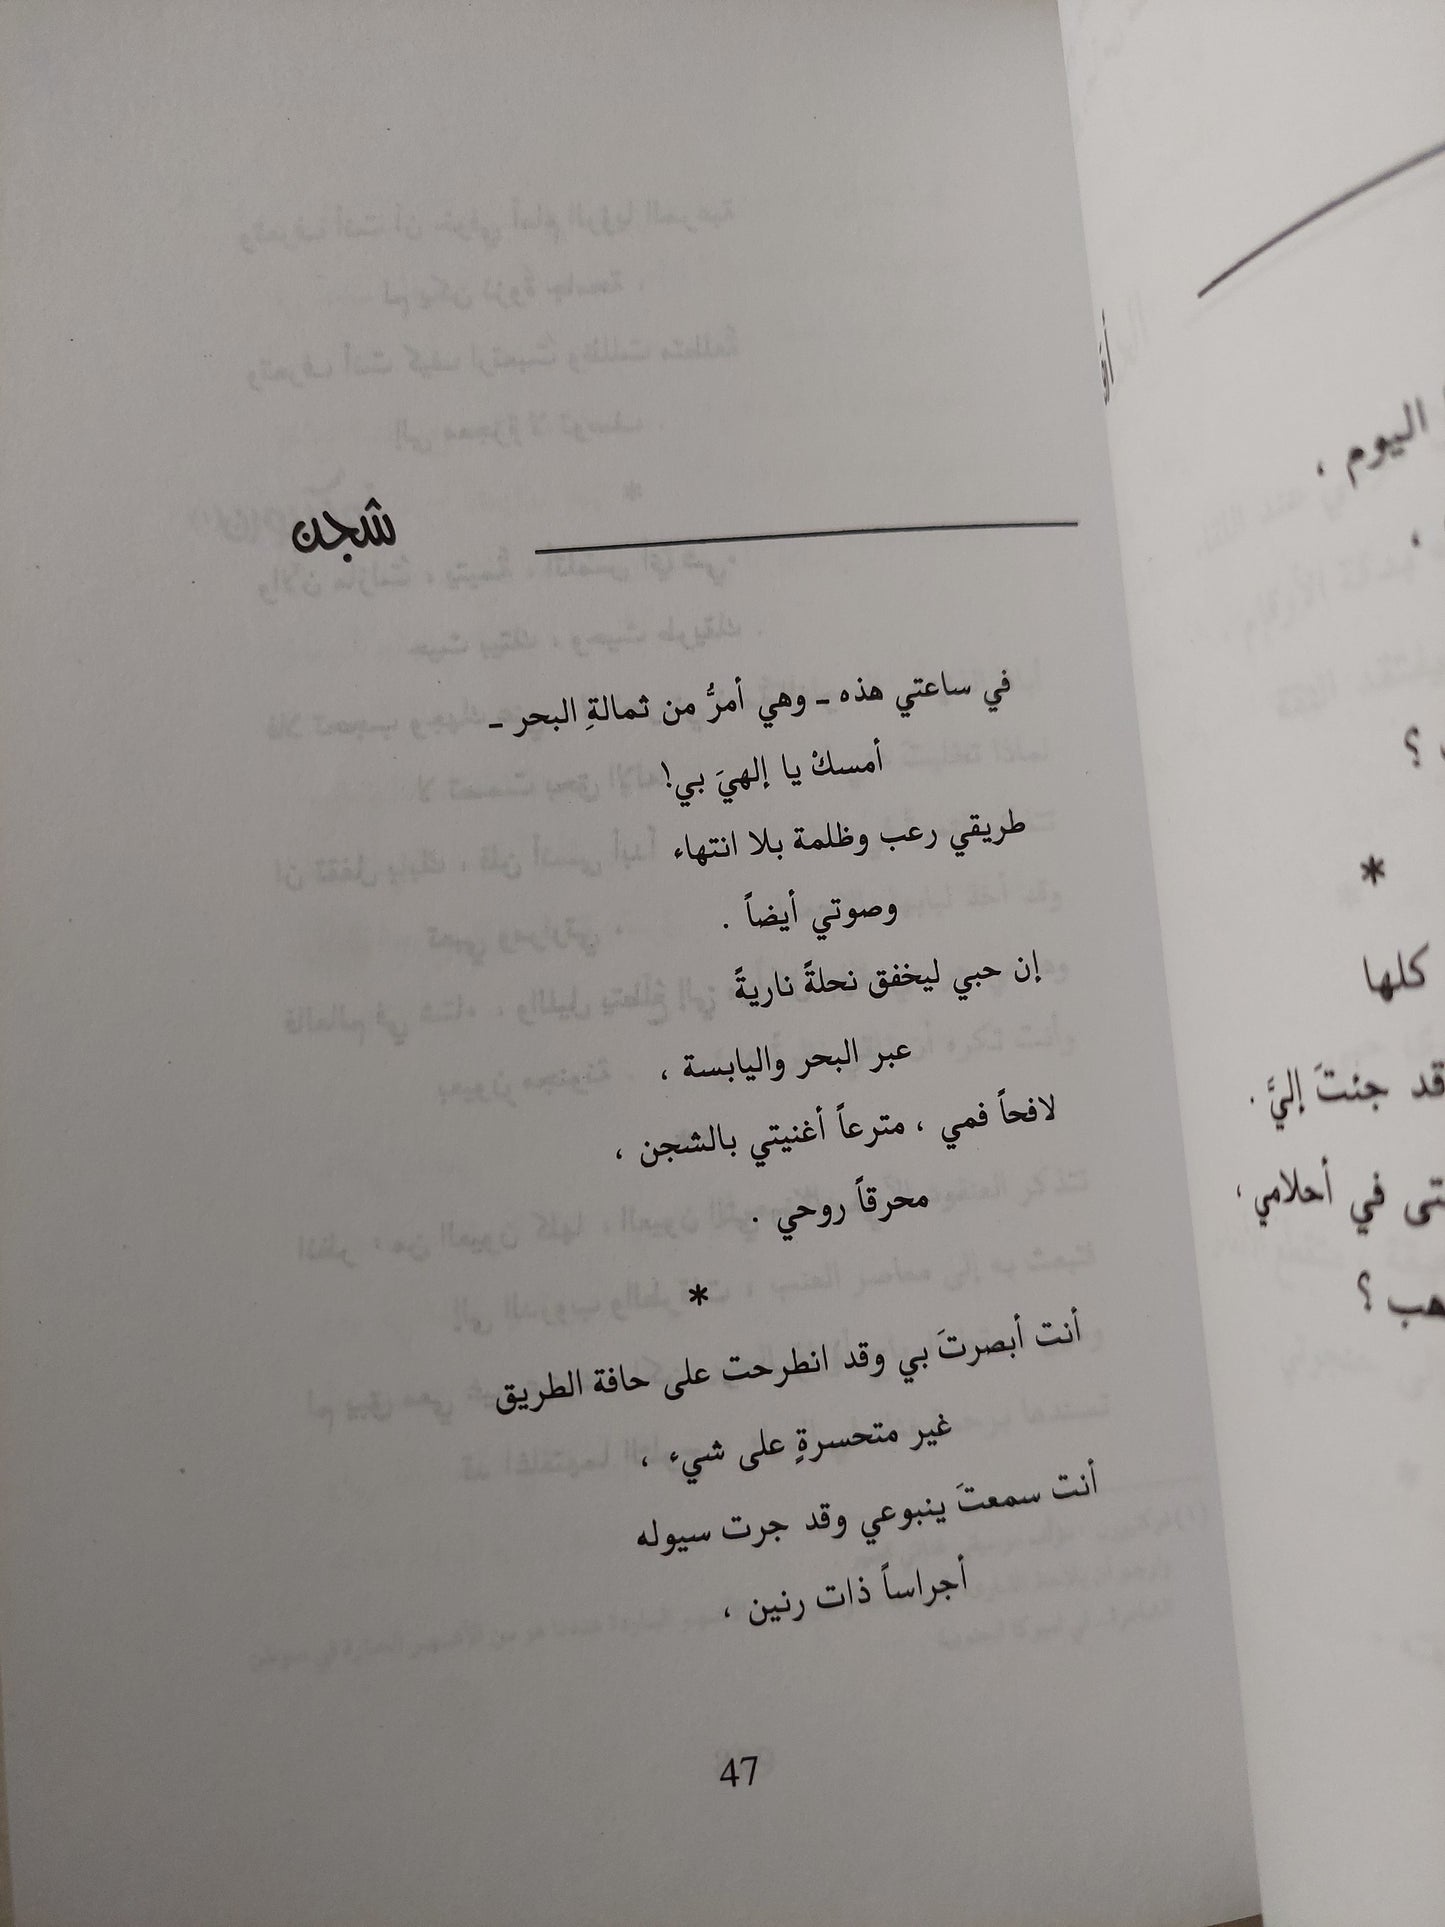 شجن
في ساعتي هذه ـ وهي أمرُّ من ثمالةِ البحر ـ
أمسكْ يا إلهيَ بي!
طريقي رعب وظلمة بلا انتهاء
وصوتي أيضاً .
إن حبي ليخفق نحلةً ناريةً
عبر البحر واليابسة ،
لافحاً فمي ، مترعاً أغنيتي بالشجن ،
محرقاً روحي .
*
أنت أبصرتَ بي وقد انطرحت على حافة الطريق
غير متحسرةٍ على شيء ،
أنت سمعتَ ينبوعي وقد جرت سيوله
أجراساً ذات رنين ،
47
اليوم ،
،
؟
*
كلها
قد جئتَ إليَّ .
في أحلامي ،
؟